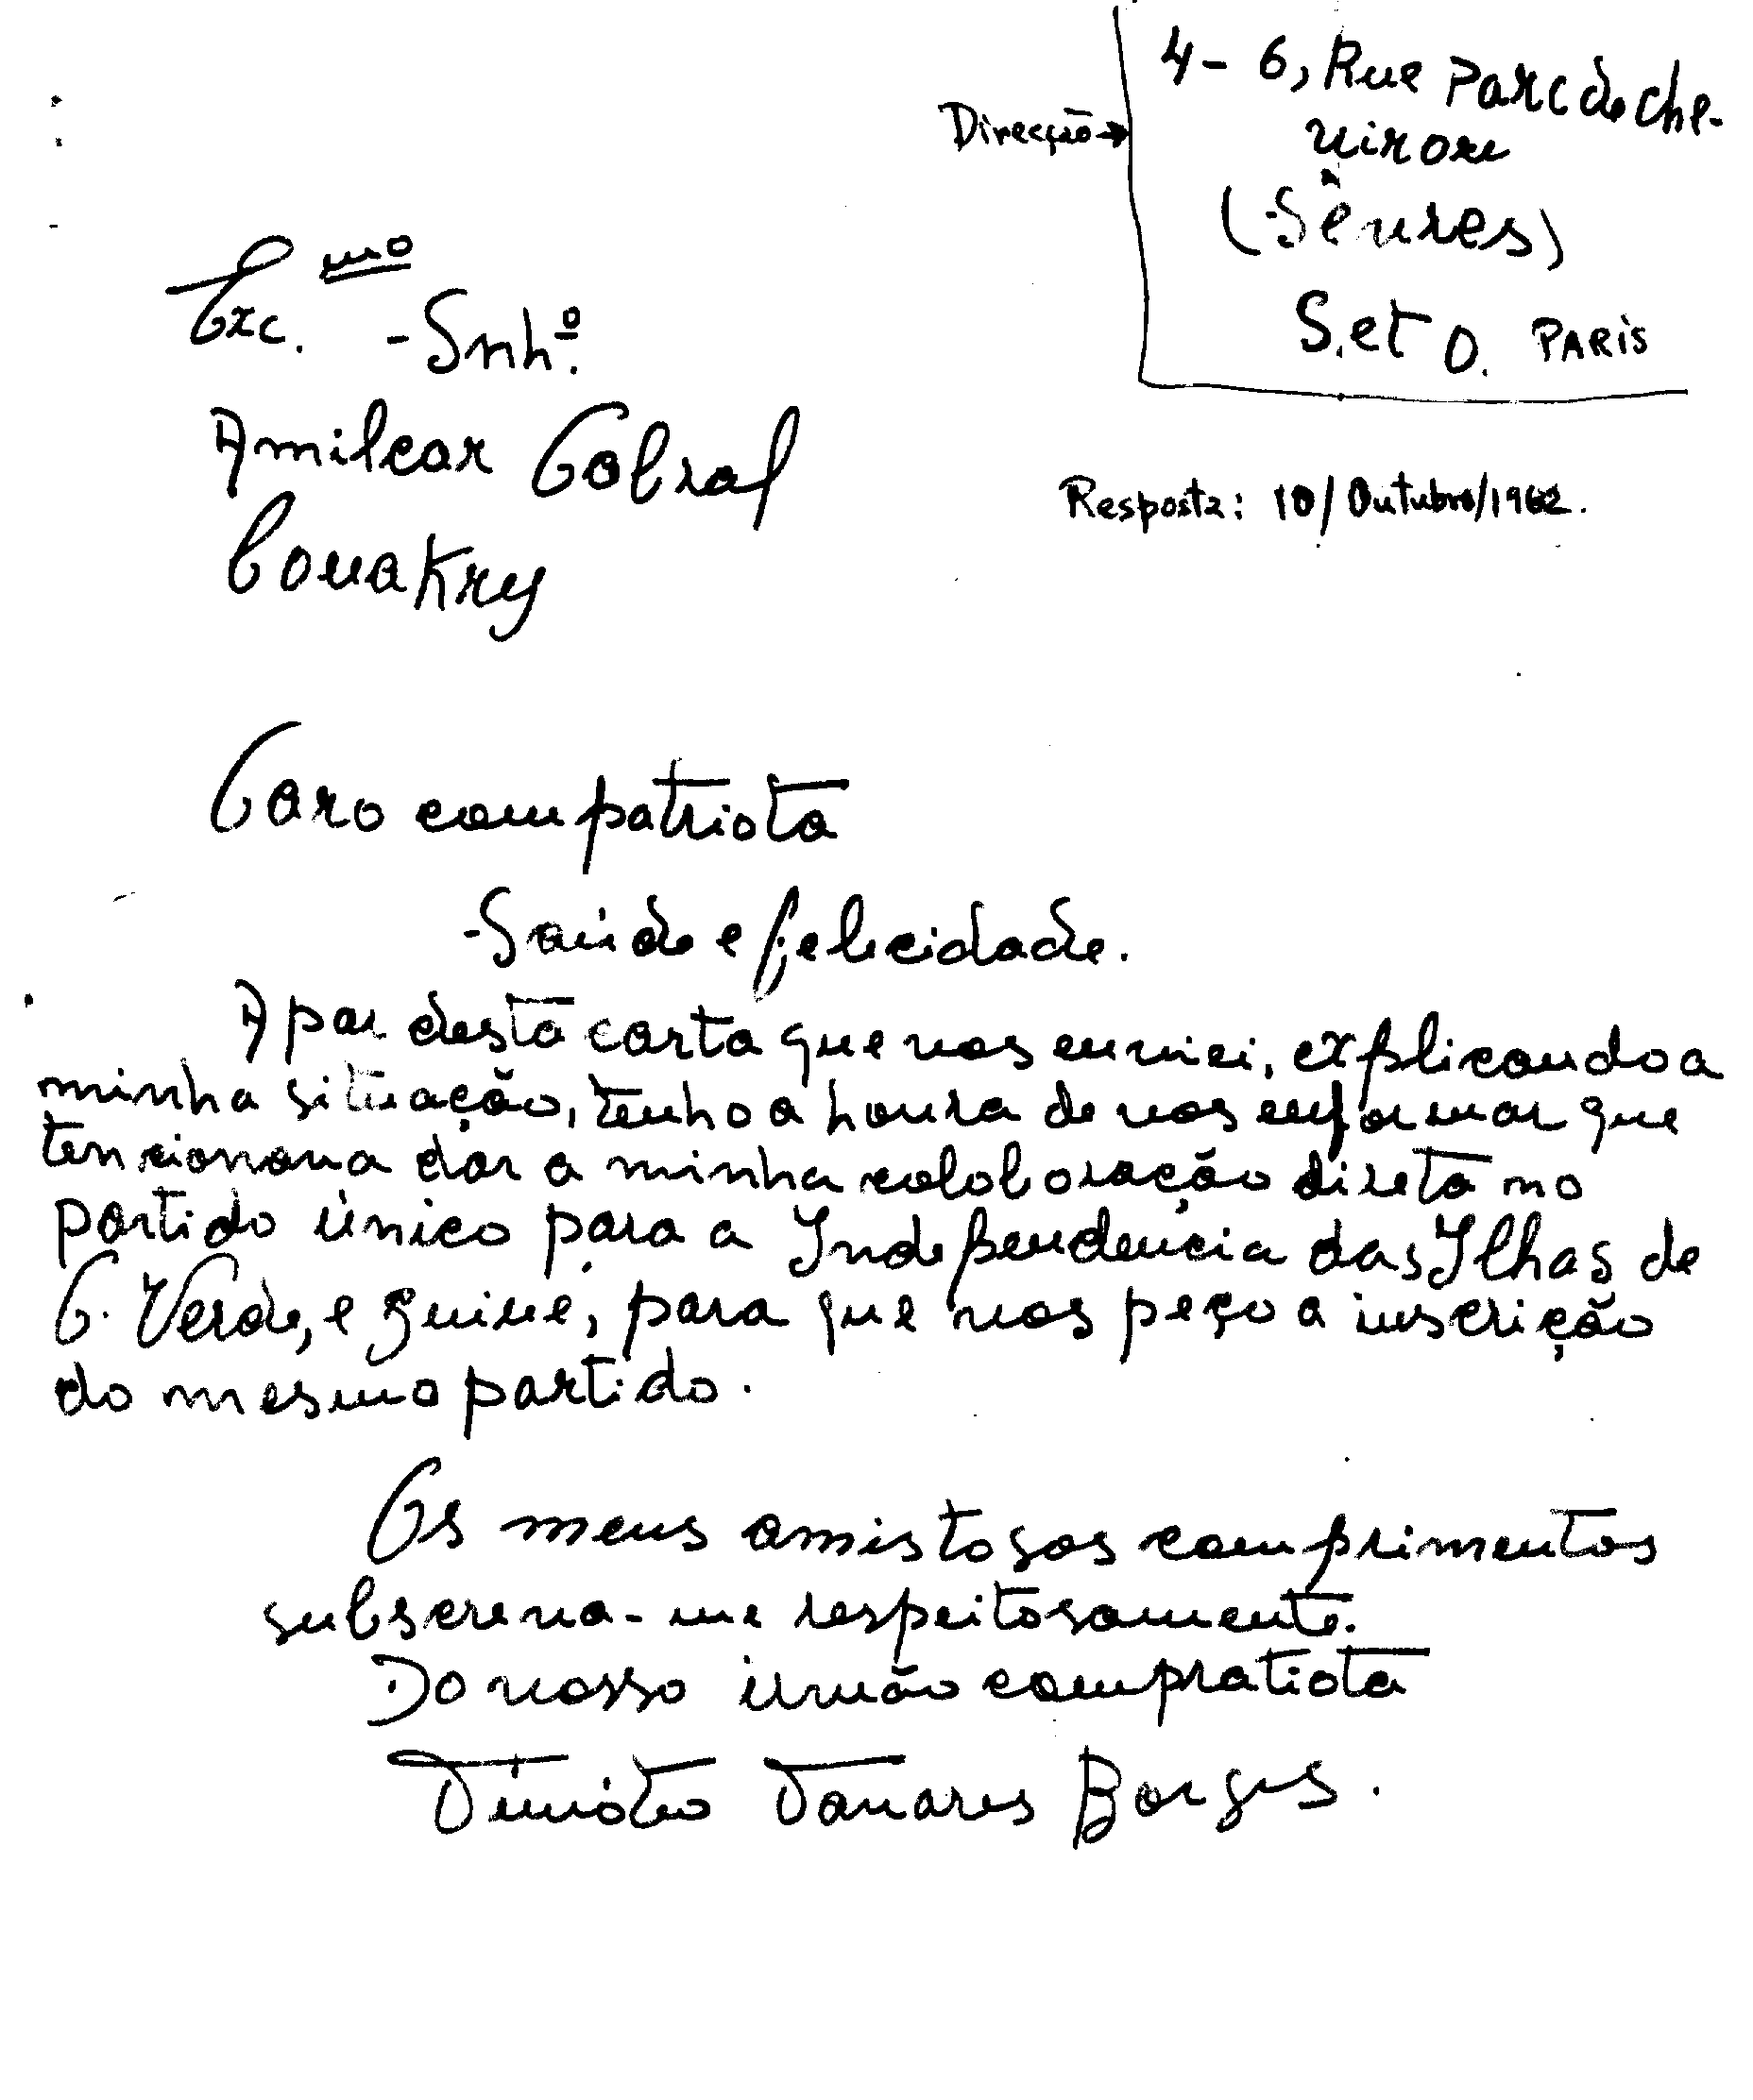 Direcção→
4-6, Rue Parc de Che-
viron
(Sèvres)
S. et O. PARIS
Exc.mo - Snhº.
Amilcar Cabral
Conakry
Resposta: 10/Outubro/1962.
Caro compatriota
-Saúde e felicidade.
A par desta carta que vos enviei, explicando a
minha situação, tenho a honra de vos enformar que
tencionava dar a minha colaboração direta no
partido único para a Independencia das Ilhas de
C. Verde, e guiné, para que vos peço a inscrição
do mesmo partido.
Os meus amistosos comprimentos
subscreva-me respeitosamente.
Do vosso irmão compratiota
Timóteo Tavares Borges.